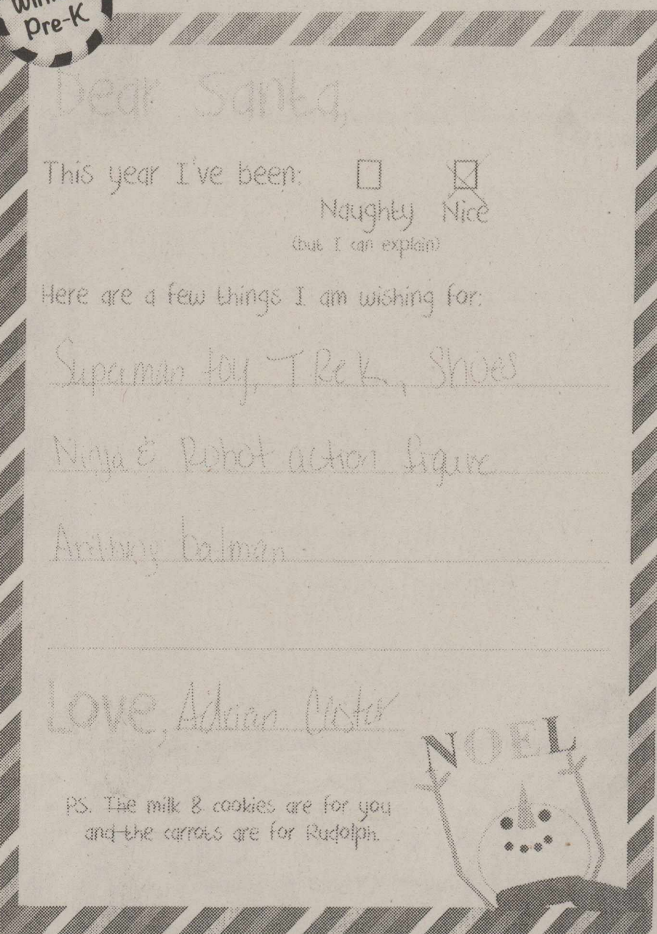 Pre-K
Dear Santa,
This year I've been:
Naughty Nice
(but I can explain)
Here are a few things I am wishing for:
Superman toy, T Rex, Shoes
Ninja & Robot action figure
batman
Love, Adrian
NOEL
P.S. The milk & cookies are for you
and the carrots are for Rudolph.